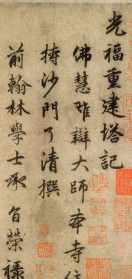 光福重建塔記
佛慧雄辯大師本寺住
持沙門可清撰
前翰林學士承旨榮祿